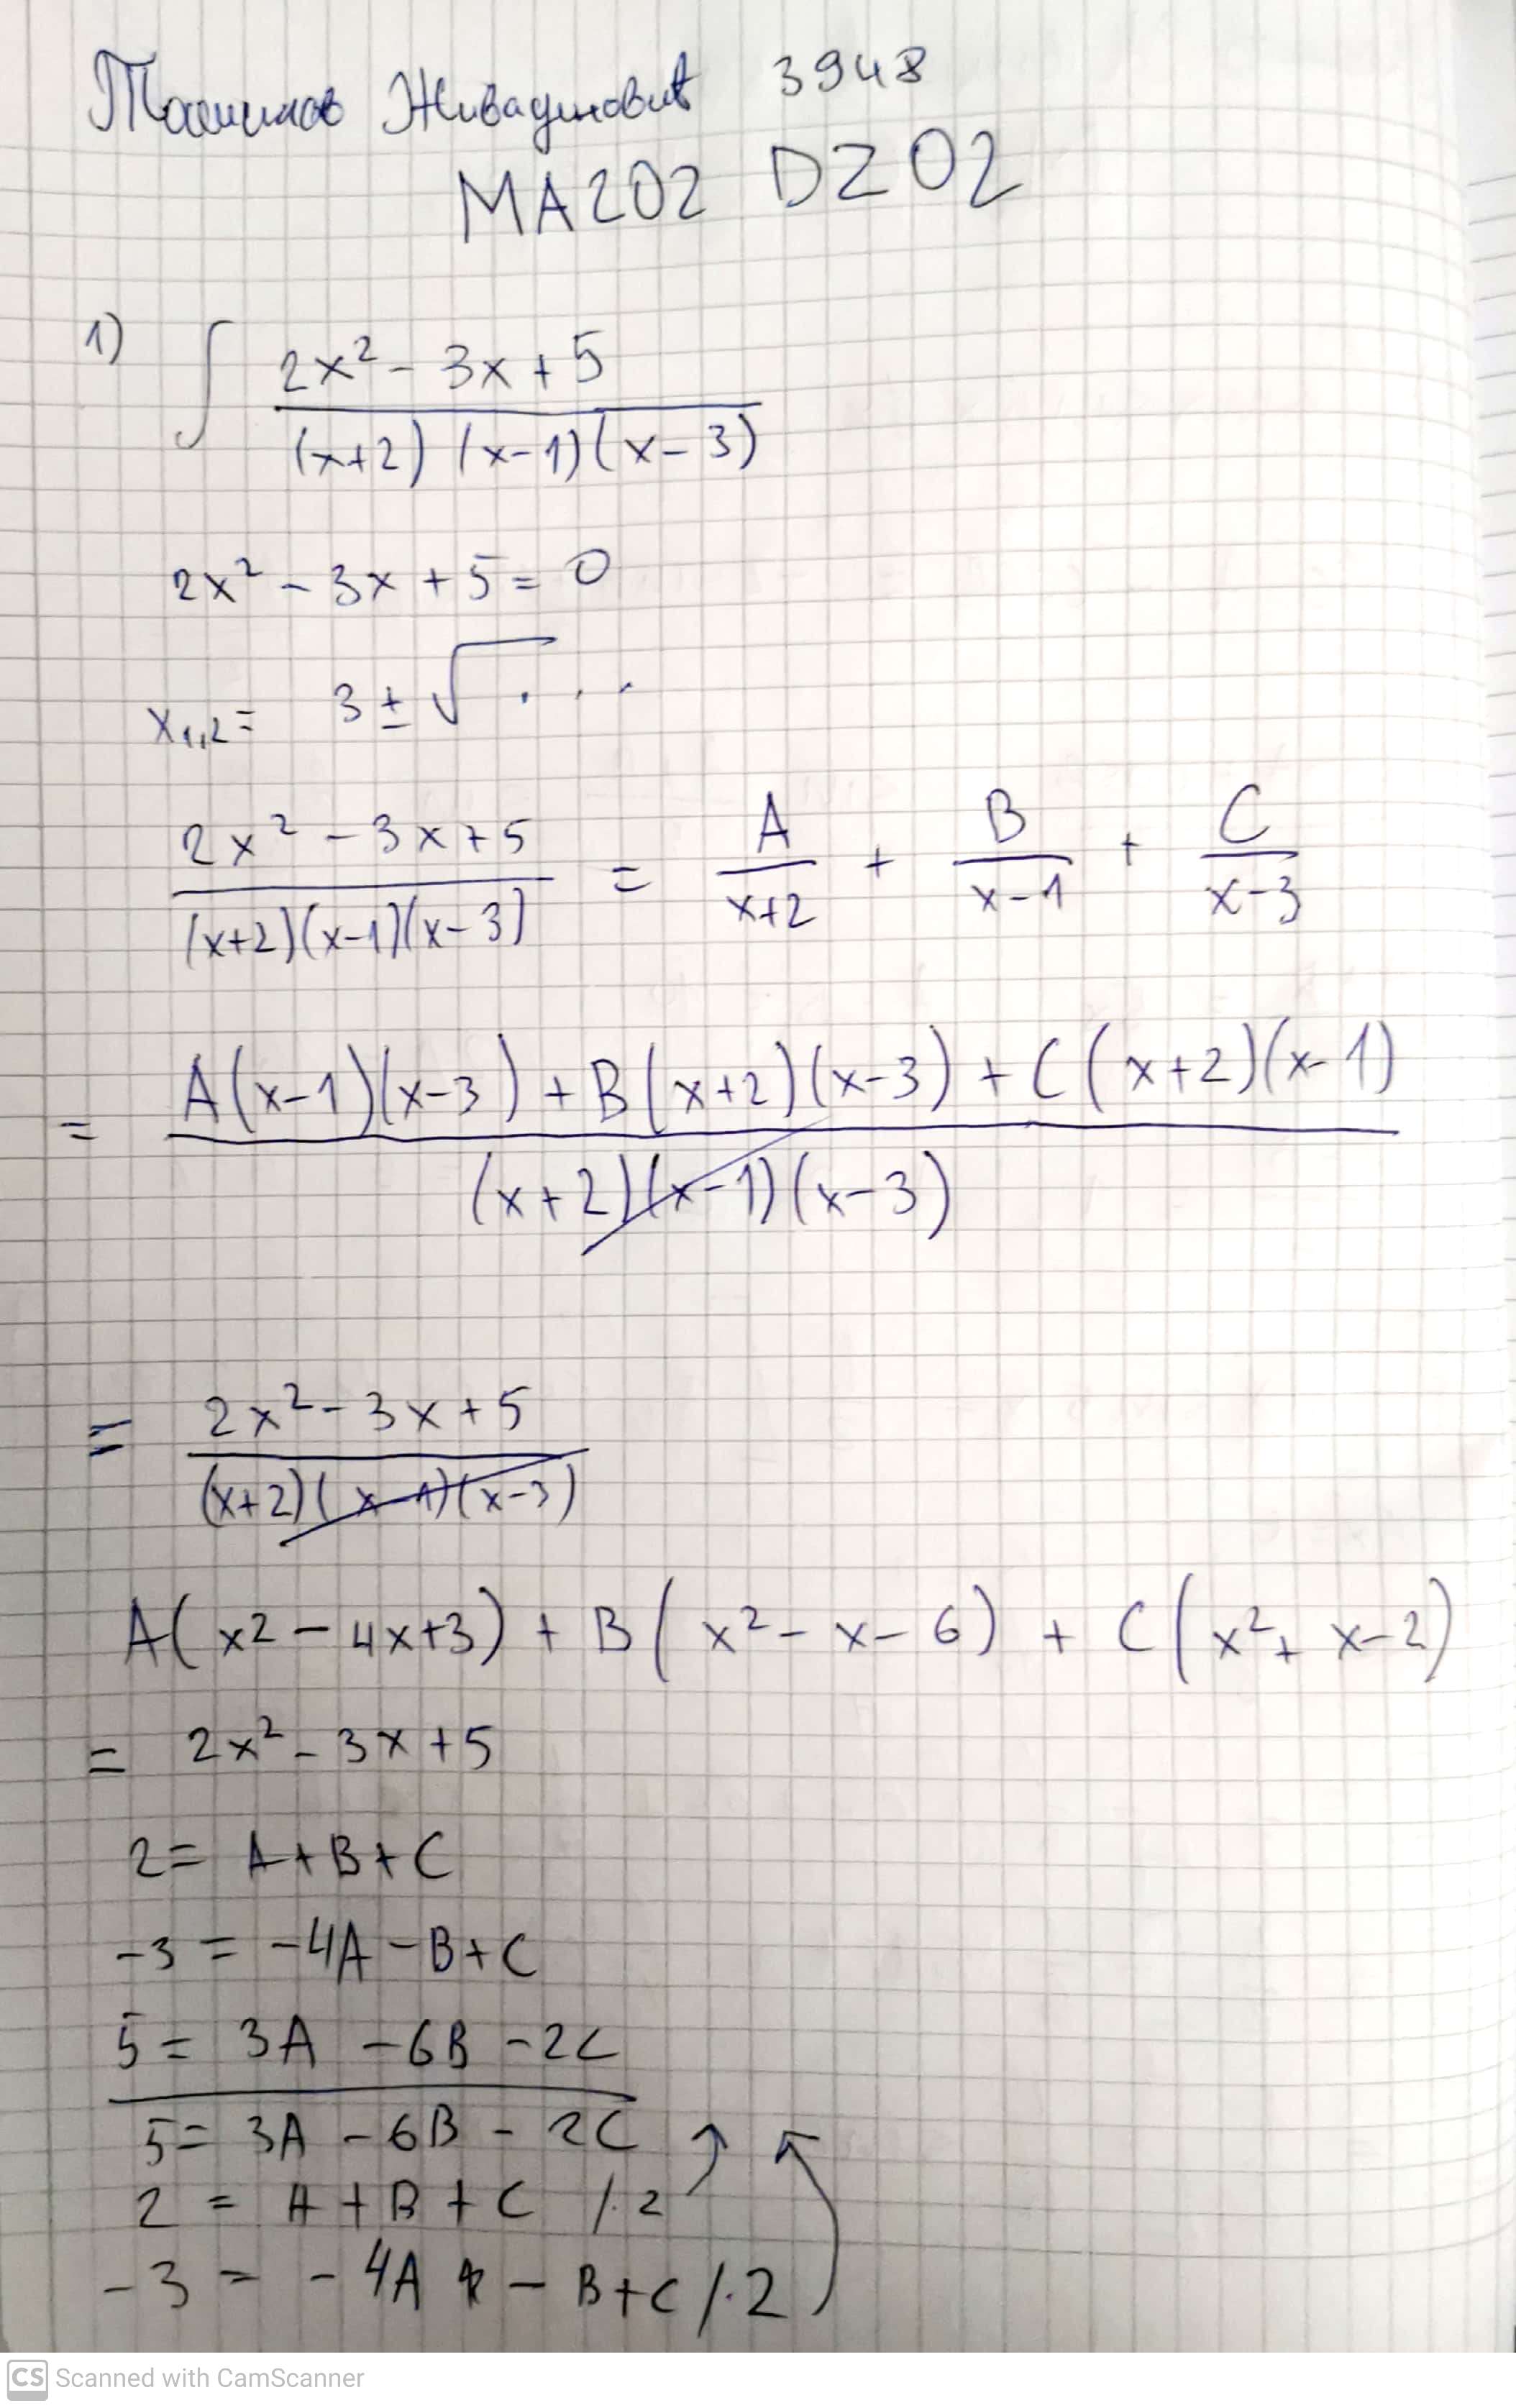 Живадиновић 3948
MA202 DZ02
1) ∫ (2x² - 3x + 5) / ((x+2)(x-1)(x-3))
2x² - 3x + 5 = 0
x₁,₂ = 3 ± √ . . .
(2x² - 3x + 5) / ((x+2)(x-1)(x-3)) = A/(x+2) + B/(x-1) + C/(x-3)
= (A(x-1)(x-3) + B(x+2)(x-3) + C(x+2)(x-1)) / ((x+2)(x-1)(x-3))
= (2x² - 3x + 5) / ((x+2)(x-1)(x-3))
A(x² - 4x + 3) + B(x² - x - 6) + C(x² + x - 2)
= 2x² - 3x + 5
2 = A + B + C
-3 = -4A - B + C
5 = 3A - 6B - 2C
5 = 3A - 6B - 2C
2 = A + B + C /·2
-3 = -4A - B + C /·2
CS Scanned with CamScanner